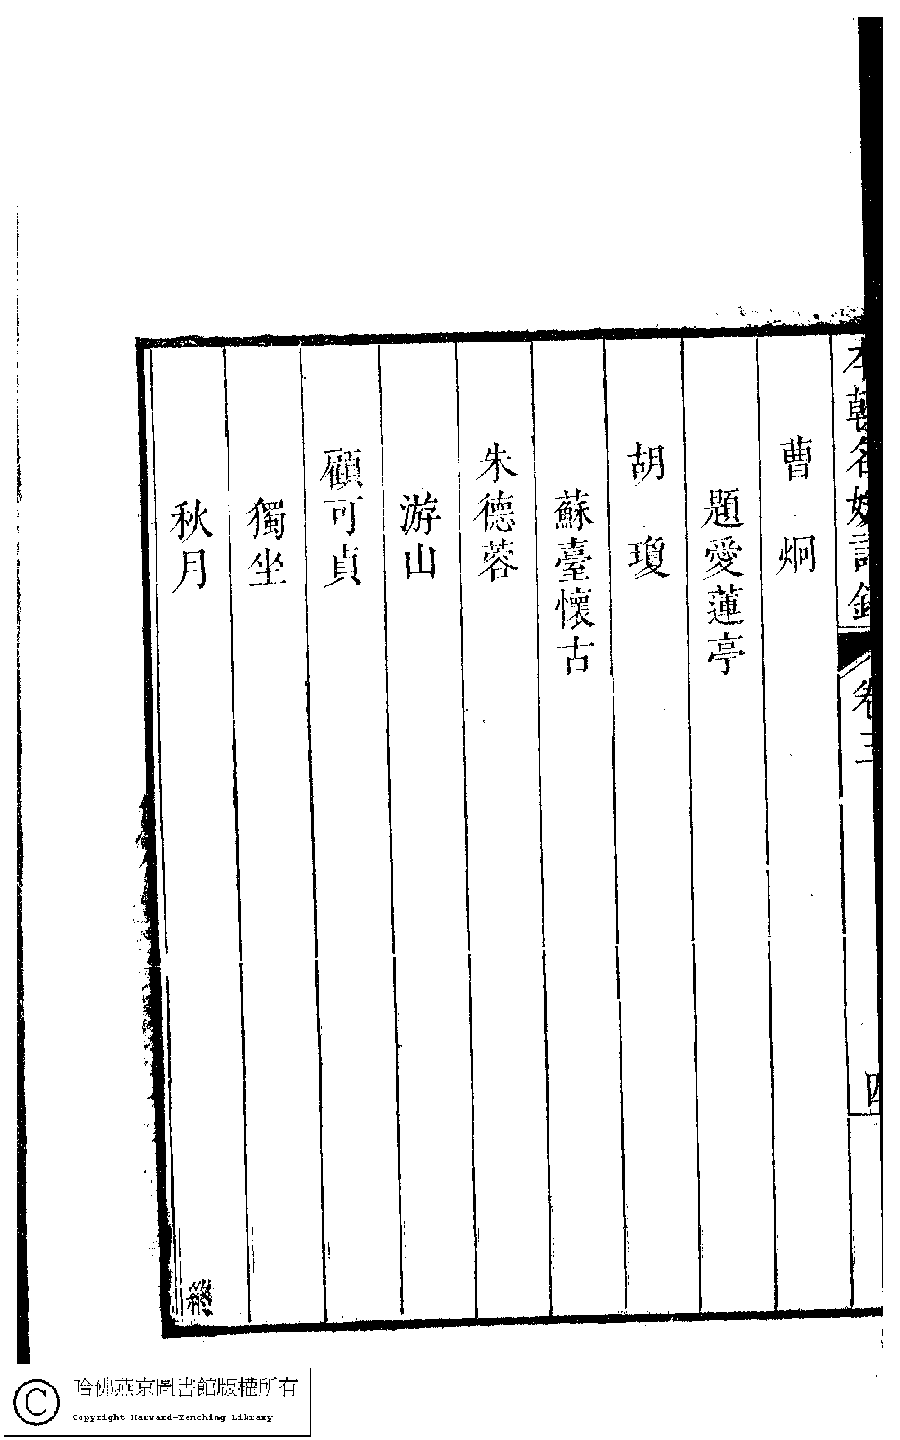 本朝名媛詩鈔 卷三 四
曹炯
題愛蓮亭
胡瓊
蘇臺懷古
朱德蓉
游山
顧可貞
獨坐
秋月
終
哈佛燕京圖書館版權所有
Copyright Harvard-Yenching Library